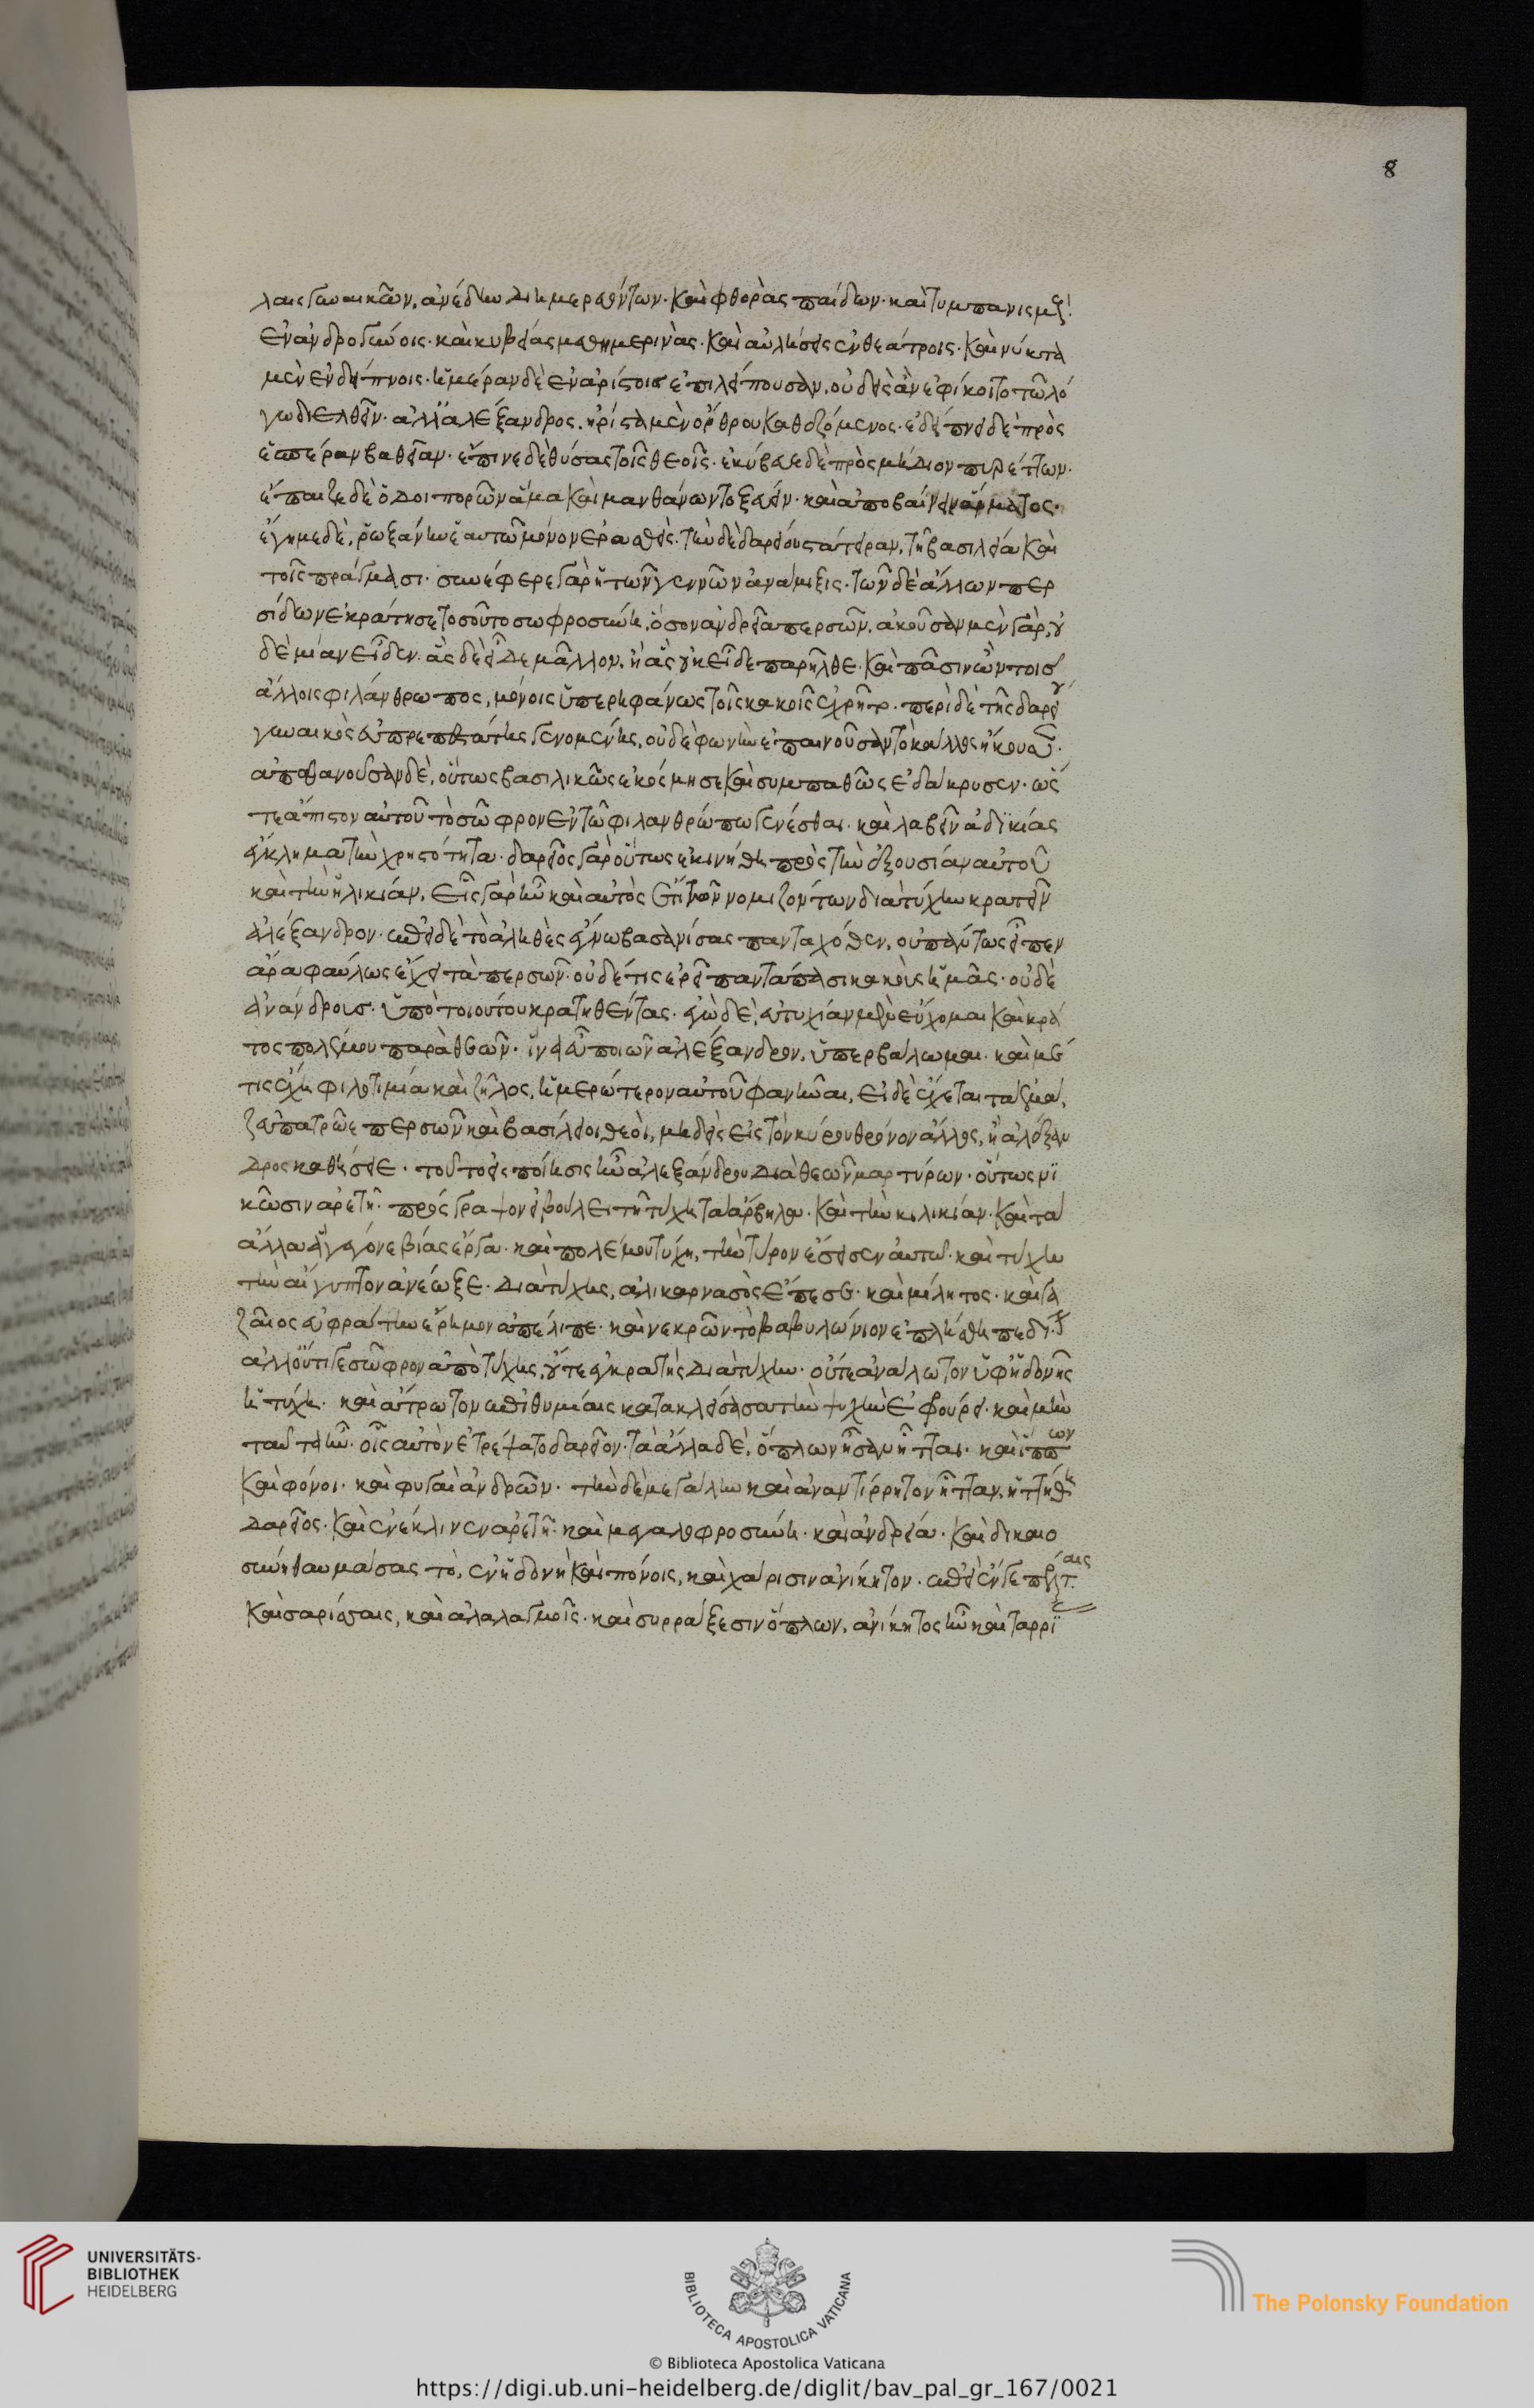 λαις γυναικῶν, ἀνέδην διημερευόντων· καὶ φθορὰς παίδων· καὶ τυμπανισμοὺς
ἐν ἀνδρογύνοις· καὶ κυβείας μεθημερινὰς· καὶ αὐλήσεις ἐν θεάτροις· καὶ νύκτα
μὲν ἐν δείπνοις· ἡμέραν δὲ ἐν ἀρίστοις ἐπιλείπουσαν, οὐδεὶς ἂν ἐφίκοιτο τῶ λό
γω διελθεῖν· ἀλλ' ἀλέξανδρος, ἠρίστα μὲν ὄρθρου καθεζόμενος· ἐδείπνει δὲ πρὸς
ἑσπέραν βαθεῖαν· ἔπινε δὲ θύσας τοῖς θεοῖς· ἐκύβευε δὲ πρὸς μήδιον πυρέττων·
ἔπαιζε δὲ ὁδοιπορῶν ἅμα καὶ μανθάνων τοξεύειν· καὶ ἀποβαίνειν ἅρματος·
ἔγημε δὲ, ῥωξάνην ἑαυτῶ μόνον ἐρασθεὶς· τὴν δὲ δαρείου στάτειραν, τῆ βασιλεία καὶ
τοῖς πράγμασι· συνέφερε γὰρ ἡ τῶν γεννῶν ἀνάμιξις· τῶν δὲ ἄλλων περ
σίδων ἐκράτησε τοσοῦτο σωφροσύνη, ὅσον ἀνδρεία περσῶν, ἄκουσαν μὲν γὰρ, οὐ
δὲ μίαν εἶδεν· ἃς δὲ εἶδε μᾶλλον, ἢ ἃς οὐκ εἶδε παρῆλθε· καὶ πᾶσιν ὢν τοῖς
ἄλλοις φιλάνθρωπος, μόνοις ὑπερηφάνως τοῖς καλοῖς ἐχρῆτο· περὶ δὲ τῆς δαρείου
γυναικὸς εὐπρεπεστάτης γενομένης, οὐδὲ φωνὴν ἐπαινοῦσαν τὸ κάλλος ἤκουσεν·
ἀποθανοῦσαν δὲ, οὕτως βασιλικῶς ἐκόσμησε καὶ συμπαθῶς ἐδάκρυσεν· ὥσ
τε ἄπιστον αὐτοῦ τὸ σῶφρον ἐν τῶ φιλανθρώπω γενέσθαι· καὶ λαβεῖν ἀδικίας
ἔγκλημα τὴν χρηστότητα· δαρεῖος γὰρ οὕτως ἐκινήθη πρὸς τὴν ἐξουσίαν αὐτοῦ
καὶ τὴν ἡλικίαν, εἷς γὰρ ἦν καὶ αὐτὸς ἔτι τῶν νομιζόντων διὰ τύχην κρατεῖν
ἀλέξανδρον· ἐπεὶ δὲ τὸ ἀληθὲς ἔγνω βασανίσας πανταχόθεν, οὐ πάντως εἶπεν
ἄρα φαύλως ἔχει τὰ περσῶν· οὐδέ τις ἐρεῖ παντάπασι κακοὺς ἡμᾶς· οὐδὲ
ἀνάνδρους· ὑπὸ τοιούτου κρατηθέντας· ἐγὼ δὲ, εὐτυχίαν μὲν εὔχομαι καὶ κρά
τος πολέμου παρὰ θεῶν· ἵν' εὖ ποιῶν ἀλέξανδρον, ὑπερβάλωμαι· καὶ μέ
τις ἔχει φιλοτιμία καὶ ζῆλος, ἡμερώτερον αὐτοῦ φανῆναι, εἰ δὲ οἴχεται τὰ ἐμὰ,
ζεῦ πατρῶε περσῶν καὶ βασίλειοι θεοὶ, μηδεὶς εἰς τὸν κύρου θρόνον ἄλλος, ἢ ἀλέξαν
δρος καθίσειε· τοῦτο εἰσποίησις ἦν ἀλεξάνδρου διὰ θεῶν μαρτύρων· οὕτως νι
κῶσιν ἀρετῆ· πρόσγραψον εἰ βούλει τῆ τύχη τὰ ἄρβηλα· καὶ τὴν κιλικίαν· καὶ τὰ
ἄλλα ἃ γέγονε βίας ἔργα· καὶ πολέμου τύχη, τὴν τύρον ἔσεισεν αὐτῶ· καὶ τύχη
τὴν αἴγυπτον ἀνέωξε· διὰ τύχης, ἁλικαρνασὸς ἔπεσε· καὶ μίλητος· καὶ μα
ζαῖος εὐφράτην ἔρημον ἀπέλιπε· καὶ νεκρῶν τὸ βαβυλώνιον ἐπλήσθη πεδίον
ἀλλ' οὔτι γε σῶφρον ἀπὸ τύχης, οὔτε ἐγκρατὴς διὰ τύχην· οὔτε ἀνάλωτον ὑφ' ἡδονῆς
ἡ τύχη· καὶ ἄτρωτον ἐπιθυμίαις κατακλείσασα τὴν ψυχὴν ἐφρούρει· καὶ μὴν
ταῦτ' ἦν· οἷς αὐτὸν ἐτρέψατο δαρεῖον· τὰ ἄλλα δὲ, ὅπλων ἦσαν ἧτται· καὶ ἵππων
καὶ φόνοι· καὶ φυγαὶ ἀνδρῶν· τὴν δὲ μεγάλην καὶ ἀναντίρρητον ἧτταν, ἡττήθη
δαρεῖος· καὶ ἐνέκλινεν ἀρετῆ· καὶ μεγαλοφροσύνη· καὶ ἀνδρεία· καὶ δικαιο
σύνη θαυμάσας τὸ, ἐν ἡδονῆ καὶ πόνοις, καὶ χάρισιν ἀνίκητον· ἐπεὶ ἔν γε πέλταις
καὶ σαρίσσαις, καὶ ἀλαλαγμοῖς· καὶ συρράξεσιν ὅπλων, ἀνίκητος ἦν καὶ ταρρι
8
UNIVERSITÄTS-
BIBLIOTHEK
HEIDELBERG
BIBLIOTECA APOSTOLICA VATICANA
The Polonsky Foundation
© Biblioteca Apostolica Vaticana
https://digi.ub.uni-heidelberg.de/diglit/bav_pal_gr_167/0021